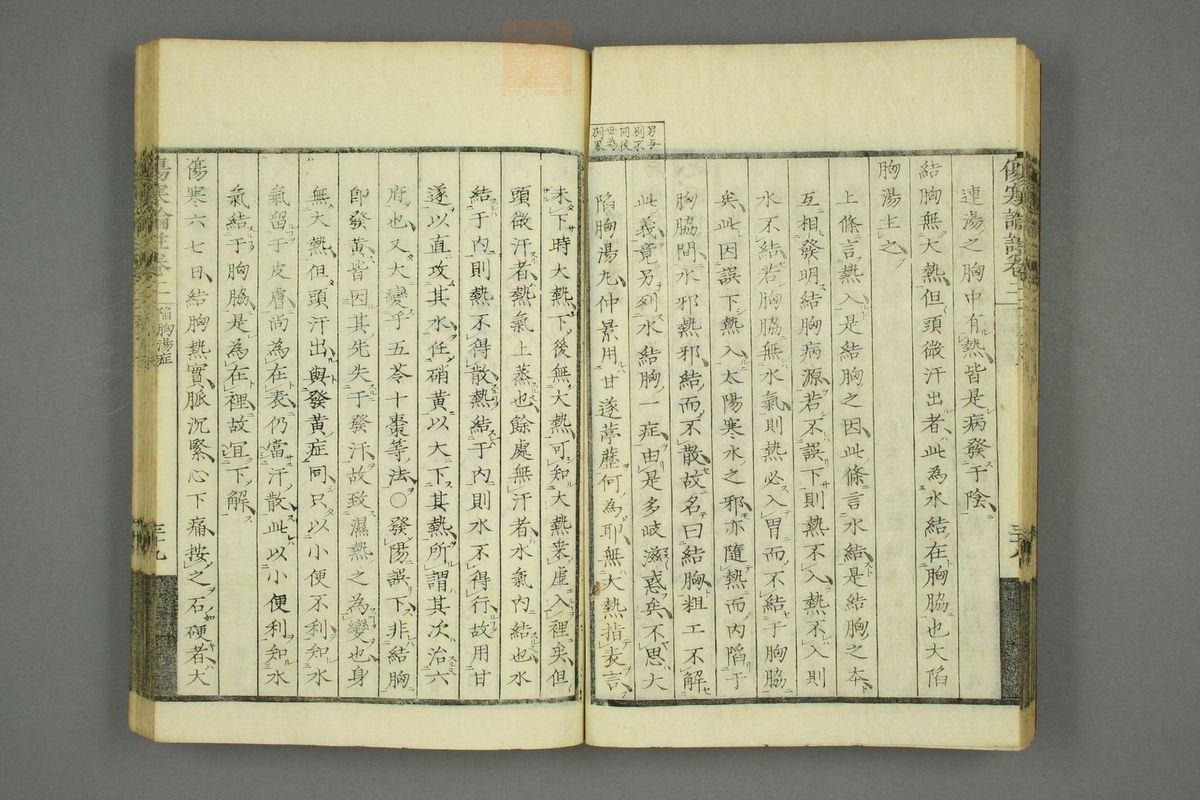 連湯之胸中有熱皆是病發于陰
結胸無大熱但頭微汗出者此為水結在胸脇也大陷
胸湯主之
上條言熱入是結胸之因此條言水結是結胸之本
互相發明結胸病源若不誤下則熱不入熱不入則
水不結若胸脇無水氣則熱必入胃而不結于胸脇
矣此因誤下熱入太陽寒水之邪亦隨熱而內陷于
胸脇間水邪熱邪結而不散故名曰結胸粗工不解
此義竟另列水結胸一症由是多岐滋惑矣不思大
陷胸湯丸仲景用甘遂葶藶何為耶無大熱指表言
另与
別不
同後
世為
別界
未下時大熱下後無大熱可知大熱乘虛入裡矣但
頭微汗者熱氣上蒸也餘處無汗者水氣內結也水
結于內則熱不得散熱結于內則水不得行故用甘
遂以直攻其水任硝黃以大下其熱所謂其次治六
府也又大變乎五苓十棗等法〇發陽誤下非結胸
即發黃皆因其先失于發汗故致濕熱之為變也身
無大熱但頭汗出與發黃症同只以小便不利知水
氣留于皮膚尚為在表仍當汗散此以小便利知水
氣結于胸脇是為在裡故宜下解
傷寒六七日結胸熱實脈沉緊心下痛按之石硬者大
傷寒論註卷二 陷胸湯症 三十九